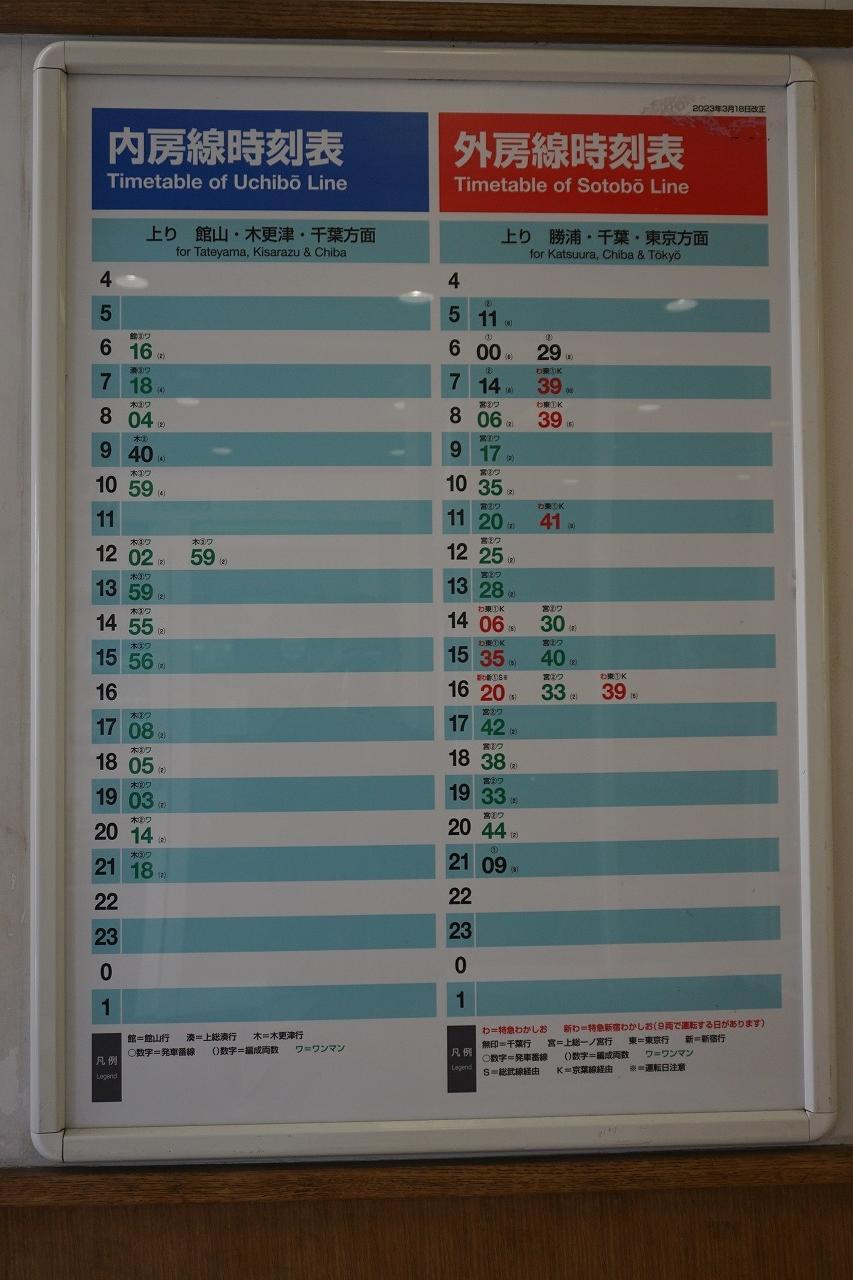 2023年3月18日改正
内房線時刻表
Timetable of Uchibō Line
上り 館山・木更津・千葉方面
for Tateyama, Kisarazu & Chiba
4
5
館③ワ
6 16 (2)
湊③ワ
7 18 (4)
木③ワ
8 04 (2)
木②
9 40 (4)
木③ワ
10 59 (4)
11
木③ワ 木③ワ
12 02 (2) 59 (2)
木③ワ
13 59 (2)
木③ワ
14 55 (2)
木③ワ
15 56 (2)
16
木②ワ
17 08 (2)
木③ワ
18 05 (2)
木②ワ
19 03 (2)
木②ワ
20 14 (2)
木③ワ
21 18 (2)
22
23
0
1
凡例
Legend
館=館山行 湊=上総湊行 木=木更津行
○数字=発車番線 ()数字=編成両数 ワ=ワンマン
外房線時刻表
Timetable of Sotobō Line
上り 勝浦・千葉・東京方面
for Katsuura, Chiba & Tōkyō
4
②
5 11
① ②
6 00 29
② わ東①K
7 14 39
宮②ワ わ東①K
8 06 (2) 39 (5)
宮②ワ
9 17 (2)
宮②ワ
10 35 (2)
宮②ワ わ東①K
11 20 (2) 41
宮②ワ
12 25 (2)
宮②ワ
13 28 (2)
わ東①K 宮②ワ
14 06 (5) 30 (2)
わ東①K 宮②ワ
15 35 (5) 40 (2)
新わ新①S※ 宮②ワ わ東①K
16 20 (5) 33 (2) 39 (5)
宮②ワ
17 42 (2)
宮②ワ
18 38 (2)
宮②ワ
19 33 (2)
宮②ワ
20 44 (2)
①
21 09
22
23
0
1
凡例
Legend
わ=特急わかしお 新わ=特急新宿わかしお(9両で運転する日があります)
無印=千葉行 宮=上総一ノ宮行 東=東京行 新=新宿行
○数字=発車番線 ()数字=編成両数 ワ=ワンマン
S=総武線経由 K=京葉線経由 ※=運転日注意